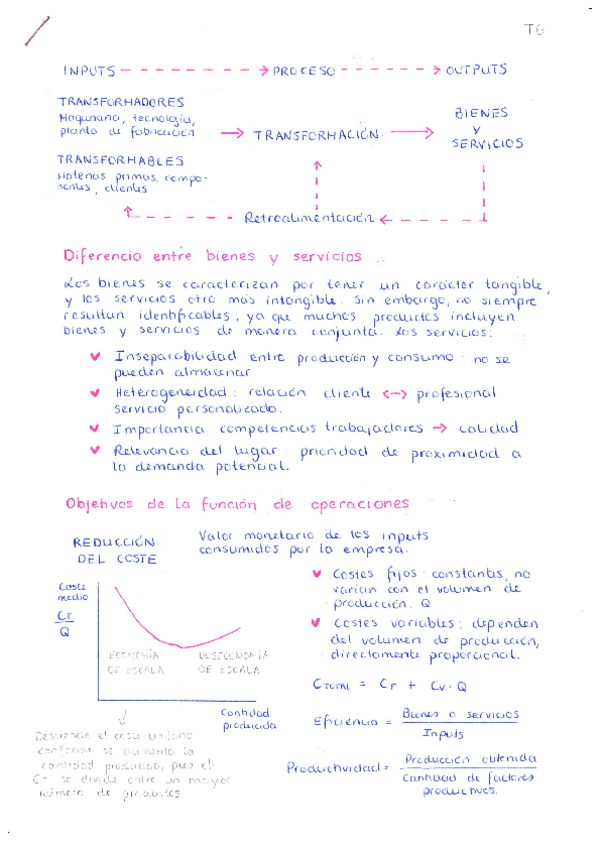 T6
INPUTS PROCESO OUTPUTS
TRANSFORMADORES
Maquinaria, tecnología,
planta de fabricación
TRANSFORMACIÓN
BIENES
Y
SERVICIOS
TRANSFORMABLES
Materias primas, compo-
nentes, clientes
Retroalimentación
Diferencia entre bienes y servicios
Los bienes se caracterizan por tener un carácter tangible,
y los servicios otro más intangible. Sin embargo, no siempre
resultan identificables, ya que muchos productos incluyen
bienes y servicios de manera conjunta. Los servicios:
Inseparabilidad entre producción y consumo: no se
pueden almacenar
Heterogeneidad: relación cliente <--> profesional
Servicio personalizado.
Importancia competencias trabajadores → calidad
Relevancia del lugar: prioridad de proximidad a
la demanda potencial.
Objetivos de la función de operaciones
REDUCCIÓN
DEL COSTE
Valor monetario de los inputs
consumidos por la empresa.
Costes fijos: constantes, no
varían con el volumen de
producción. Q
Costes variables: dependen
del volumen de producción,
directamente proporcional.
CTOTAL = CF + CV · Q
Eficiencia = Bienes o servicios
Inputs
Productividad = Producción obtenida
Cantidad de factores
productivos.
Coste
medio
CT
Q
ECONOMÍA
DE ESCALA
DESECONOMÍA
DE ESCALA
Cantidad
producida
Desciende el coste unitario
conforme se aumenta la
cantidad producida, pues el
se divide entre un mayor
número de productos